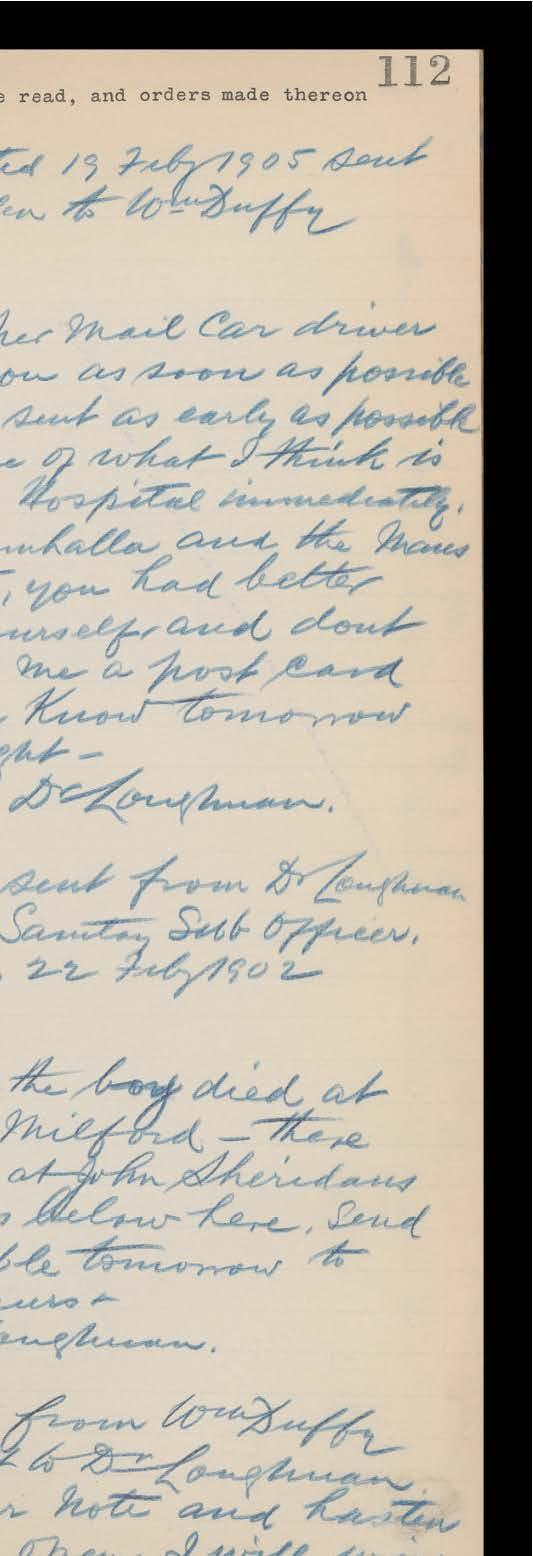 112
e read, and orders made thereon
ted 19 Feby 1905 sent
to Wm Duffy
her Mail Car driver
ou as soon as possible
sent as early as possible
e of what I think is
Hospital immediately.
and the
, you had better
urself, and dont
me a post card
Know tomorrow
ght -
Dr Loughman.
sent from Dr Loughman
Sanitay Sub Officer.
22 Feby 1902
the boy died at
Milford - there
at John Sheridans
s below here. Send
ble tomorrow to
urs
oughman.
from Wm Duffy
to Dr Loughman
r note and hasten
I will